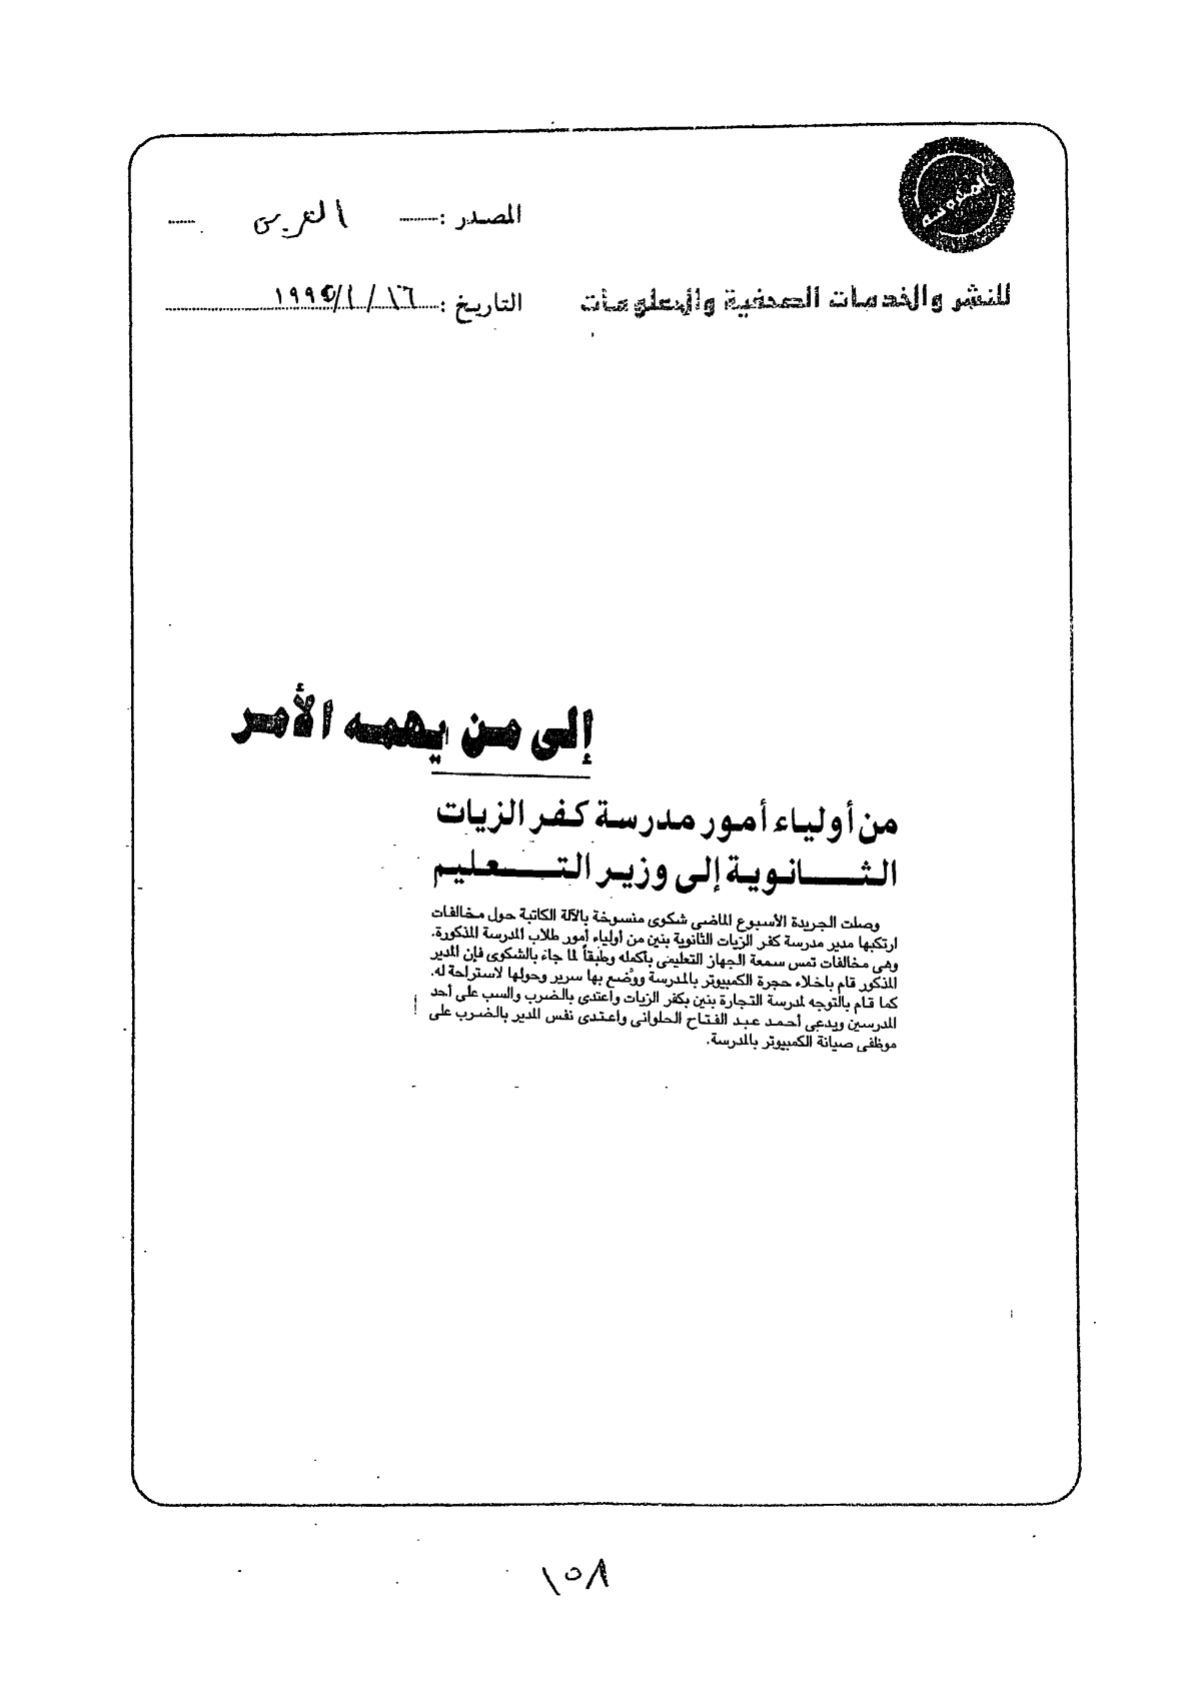 المحروسة
المصدر : العربى
للنشر والخدمات الصحفية والمعلومات
التاريخ : ١٦ / ١ / ١٩٩٥
إلى من يهمه الأمر
من أولياء أمور مدرسة كفر الزيات
الثانوية إلى وزير التعليم
وصلت الجريدة الأسبوع الماضى شكوى منسوخة بالآلة الكاتبة حول مخالفات
ارتكبها مدير مدرسة كفر الزيات الثانوية بنين من أولياء أمور طلاب المدرسة المذكورة.
وهى مخالفات تمس سمعة الجهاز التعليمى بأكمله وطبقاً لما جاء بالشكوى فإن المدير
المذكور قام باخلاء حجرة الكمبيوتر بالمدرسة ووُضع بها سرير وحولها لاستراحة له.
كما قام بالتوجه لمدرسة التجارة بنين بكفر الزيات واعتدى بالضرب والسب على أحد
المدرسين ويدعى أحمد عبد الفتاح الحلوانى واعتدى نفس المدير بالضرب على
موظفى صيانة الكمبيوتر بالمدرسة.
١٥٨